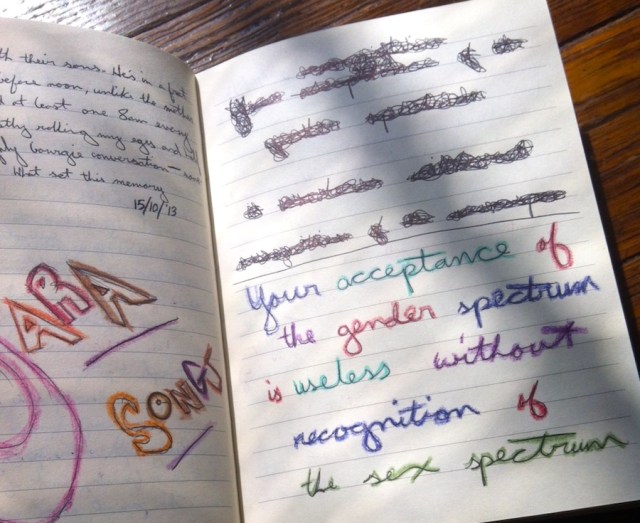 their sons. He's in a
before noon, unlike the
at least one 8am every
rolling my eyes and
bourgie conversation—
that set this memory
15/10/'13
ARA
SONG
Your acceptance of
the gender spectrum
is useless without
recognition of
the sex spectrum